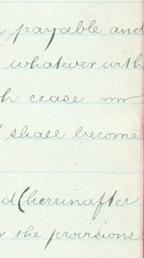 payable and
whatever with
h cease
shall become
d (hereinafter
the provisions